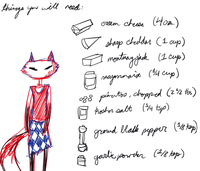 things you will need:
cream cheese (4 oz)
sharp cheddar (1 cup)
monterey jack (1 cup)
mayonnaise (1/4 cup)
pimentos, chopped (2 1/2 tbs)
kosher salt (1/4 tsp)
ground black pepper (1/8 tsp)
garlic powder (1/8 tsp)